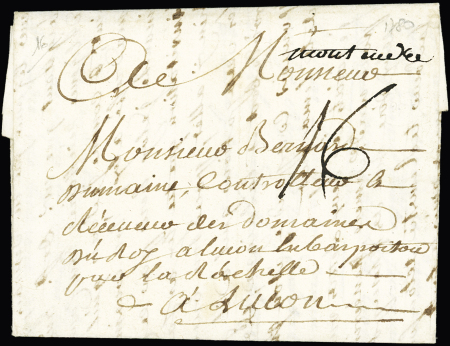 16
1780
montendre
A
Monsieur
16
Monsieur Bernard
Dumaine, Controlleur &
Receveur des Domaines
du Roy a lucon En bas poitou
par la Rochelle
a Luçon